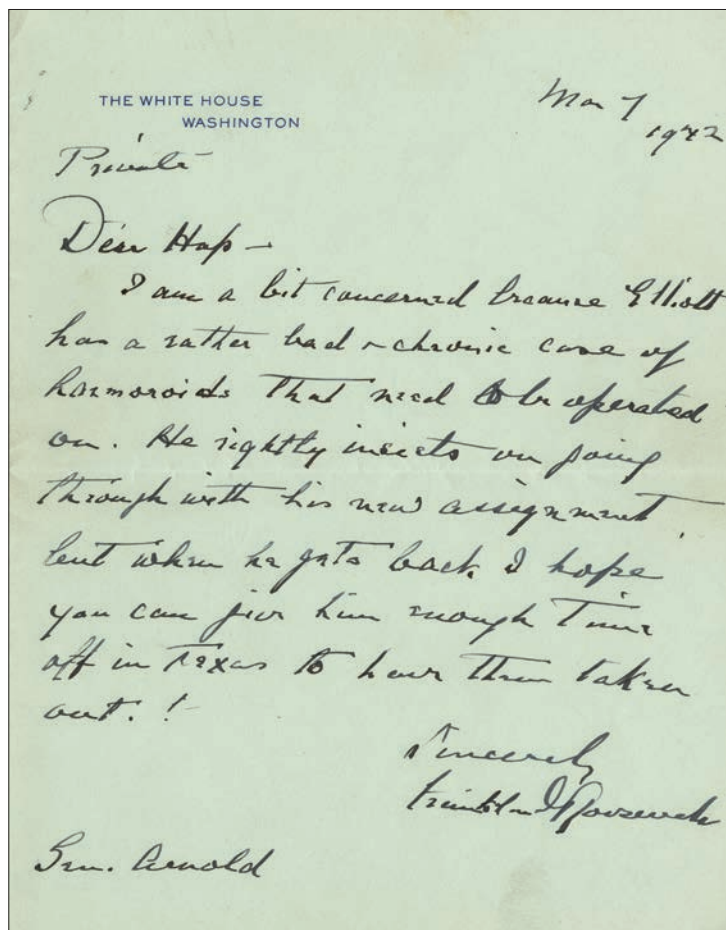 THE WHITE HOUSE
WASHINGTON
Mar 7
1942
Private
Dear Hap –
I am a bit concerned because Elliott
has a rather bad & chronic case of
haemoroids that need to be operated
on. He rightly insists on going
through with his new assignment,
but when he gets back I hope
you can give him enough time
off in Texas to have them taken
out. !
Sincerely
Franklin D Roosevelt
Gen. Arnold